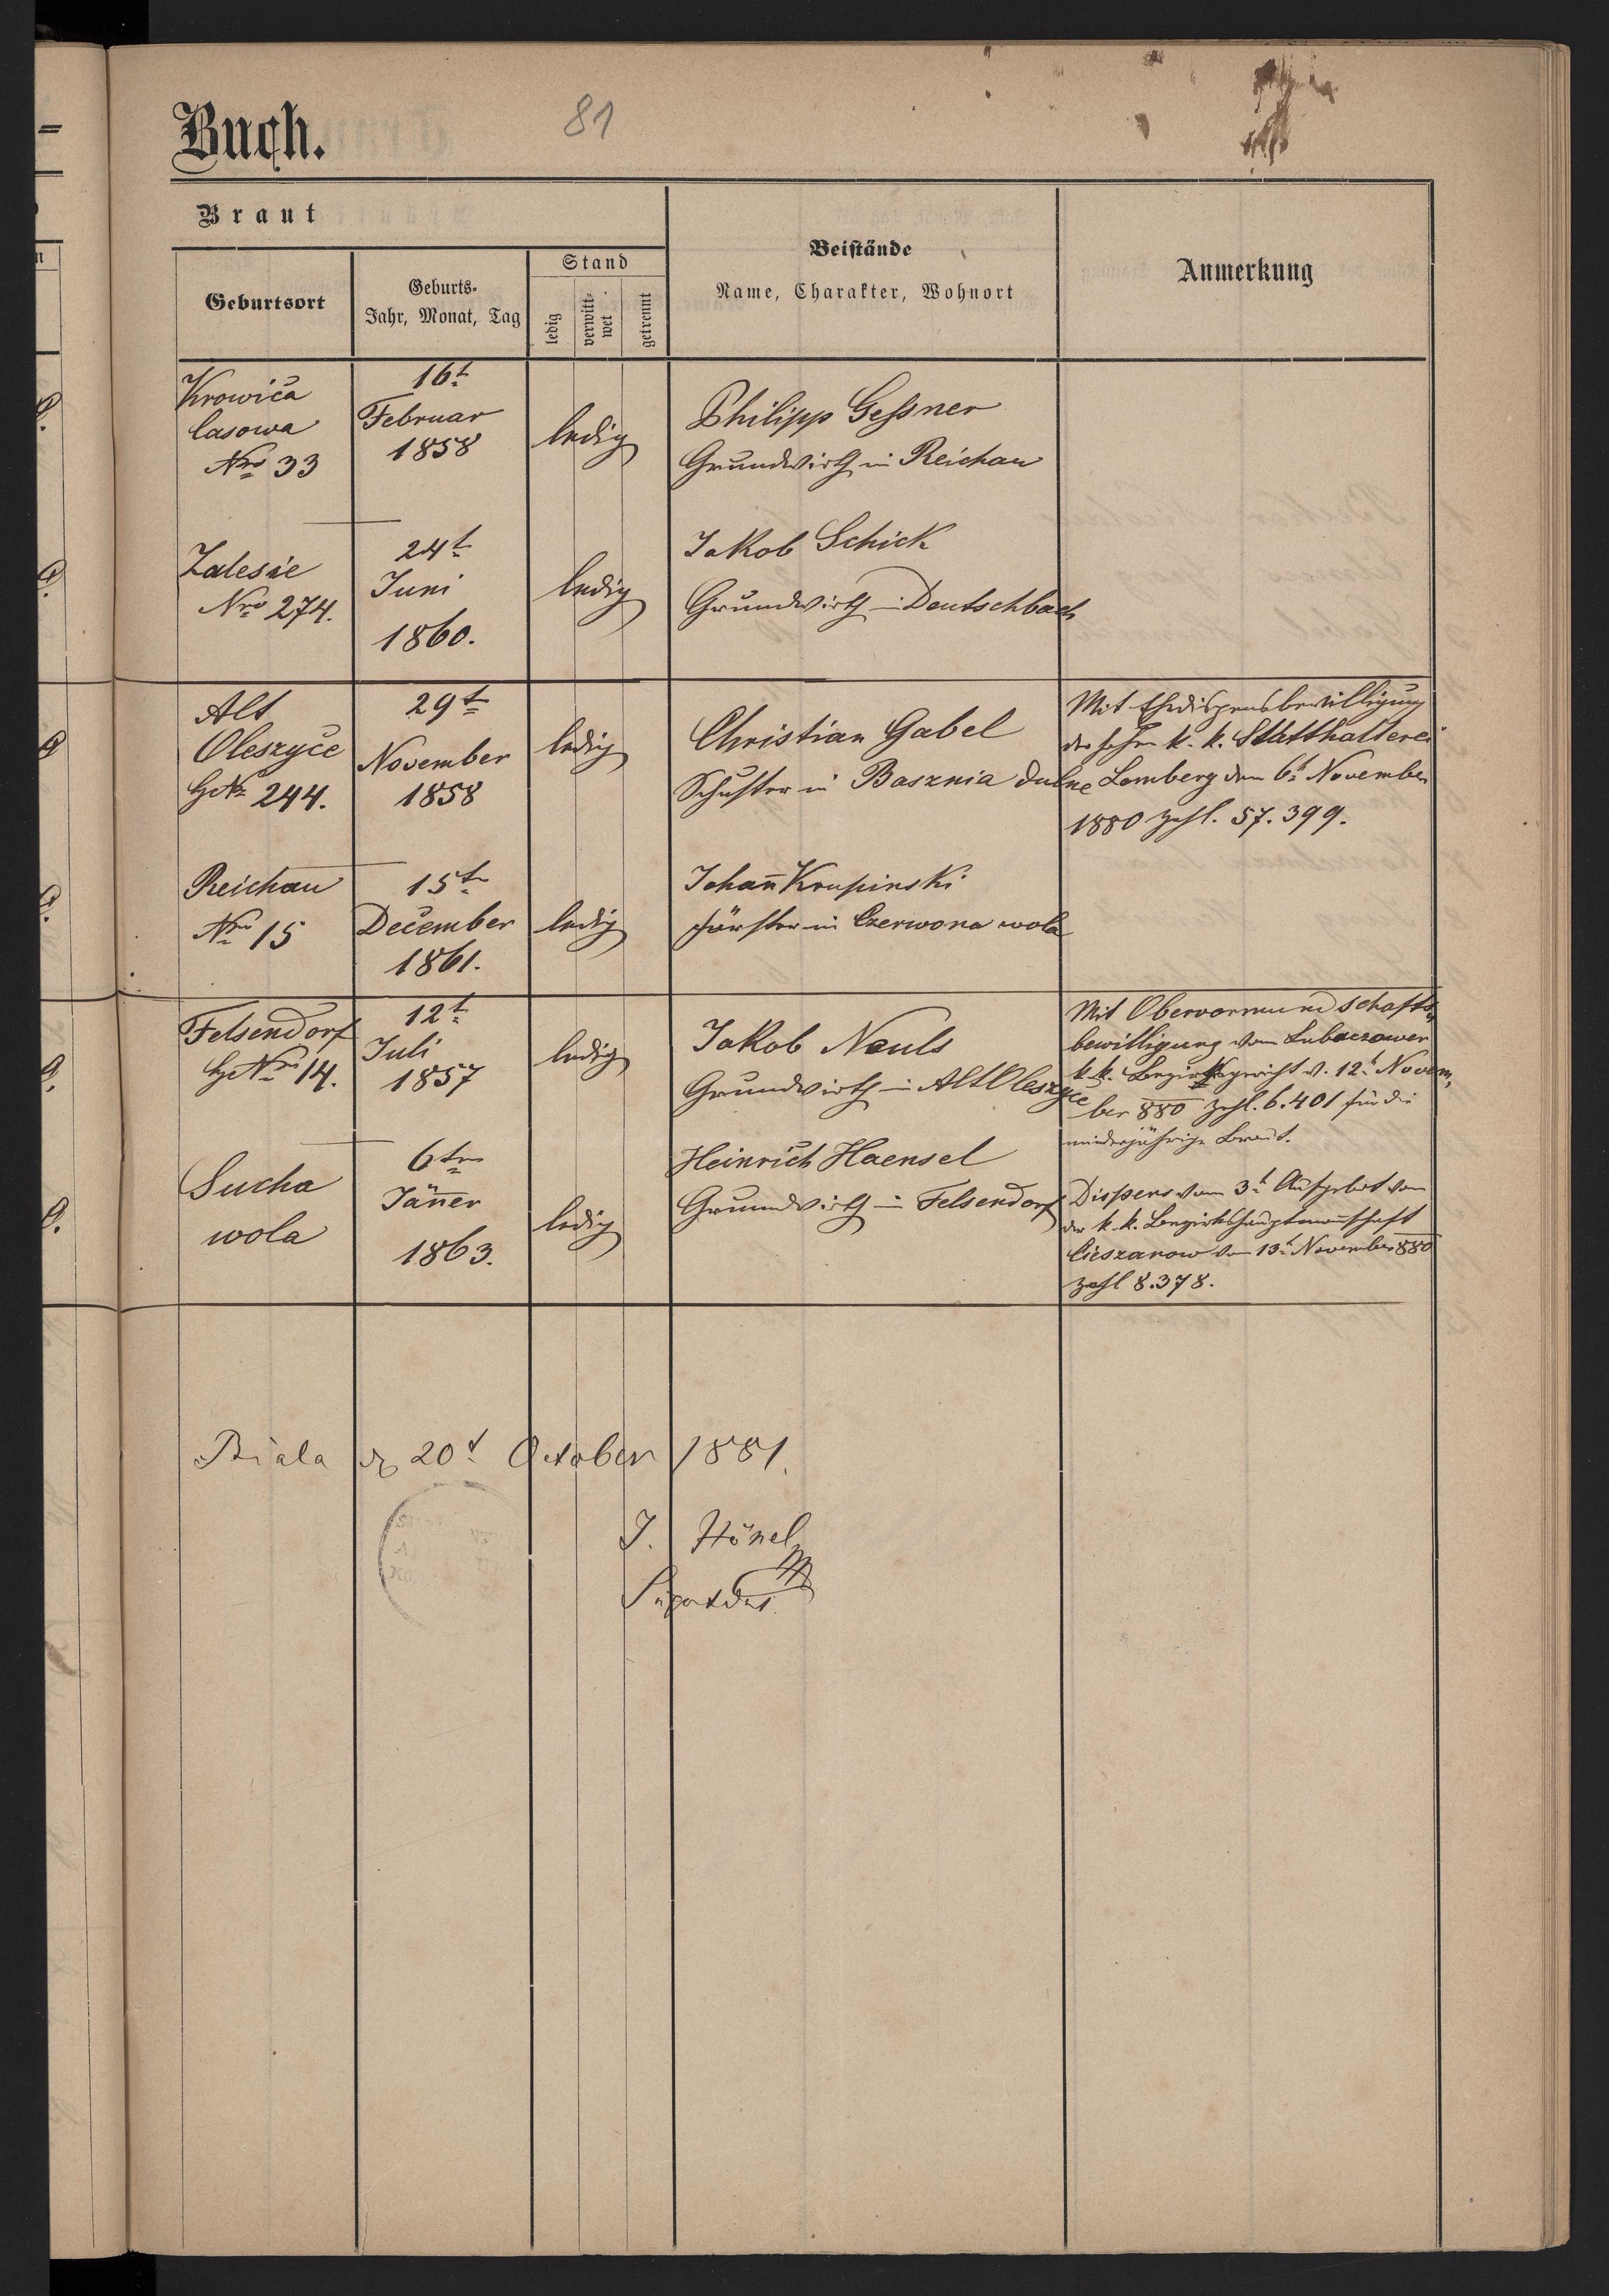 Buch.
81
Braut
Beistände
Name, Charakter, Wohnort
Anmerkung
Geburtsort
Geburts-
Jahr, Monat, Tag
Stand
ledig
verwitt-
wet
getrennt
Krowica
lasowa
Nro 33
16t
Februar
1858
ledig
Philipp Gessner
Grundwirth in Reichau
Zalesie
Nro 274.
24t
Juni
1860.
ledig
Jakob Schick
Grundwirth in Deutschbach
Alt
Oleszyce
HsNr 244.
29t
November
1858
ledig
Christian Gabel
Schuster in Basznia dolne
Mit Ehedispensbewilligung
der hohen k. k. Statthalterei
Lemberg vom 6t November
1880 Zahl. 57.399.
Reichau
Nro 15
15te
December
1861.
ledig
Johan̄ Krupinski
Förster in Czerwona wola
Felsendorf
HsNro 14.
12t
Juli
1857
ledig
Jakob Neuls
Grundwirth in Alt Oleszyce
Mit Obervormundschafts-
bewilligung vom Lubaczower
k. k. Bezirksgericht v. 12t Novem-
ber 880 Zahl. 6.401 für die
minderjährige Braut.
Sucha
wola
6ten
Jän̄er
1863.
ledig
Heinrich Haensel
Grundwirth in Felsendorf
Dispens vom 3t Aufgebot von
der k. k. Bezirkshauptman̄schaft
Cieszanow vom 13t November 880
Zahl 8.378.
Biala d. 20t October 1881.
J. Hönel